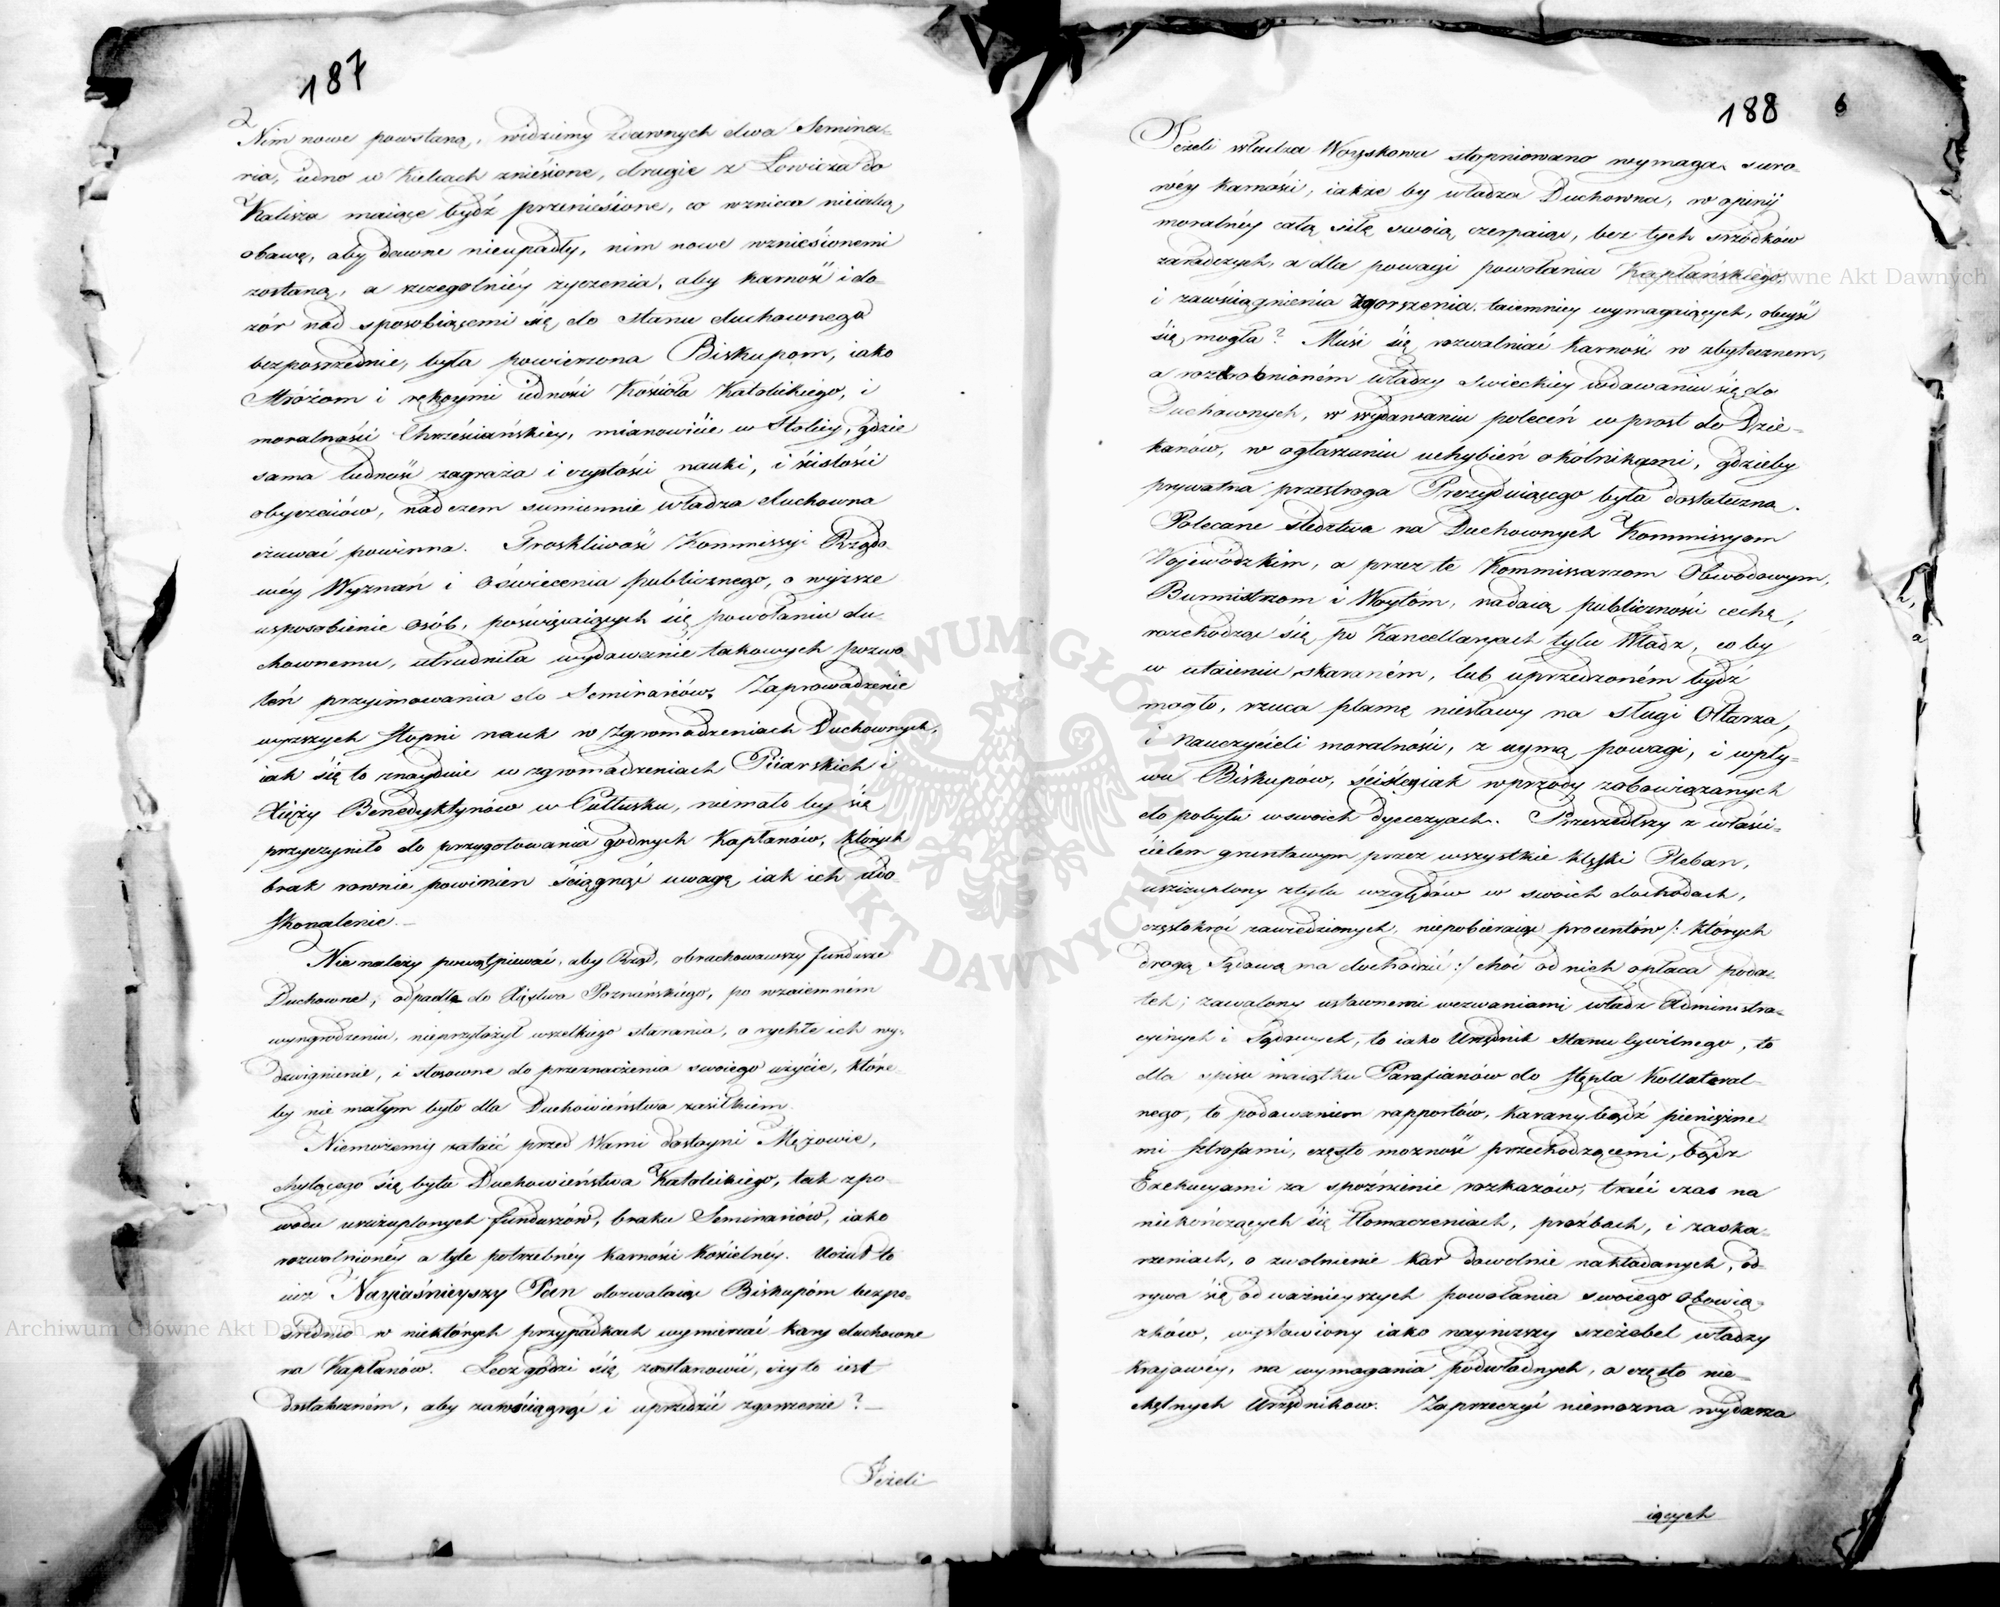 187
Nim nowe powstaną, widziemy zdawnych dwa Semina-
ria, iedno w Kielcach zniesione, drugie z Łowicza do
Kalisza maiące bydź przeniesione, co wznieca nieiaką
obawę, aby dawne nieupadły, nim nowe wzniesionemi
zostaną, a szczegolniéy życzenia, aby karność i do-
zór nad sposobiącemi się do stanu duchownego
bezpośrzednie, była powierzona Biskupom, iako
Stróżom i rękoymi iedności Kościoła Katolickiego, i
moralności Chrześciańskiey, mianowicie w Stolicy, gdzie
sama ludność zagraża i czystości nauki, i ścisłości
obyczaiów, nad czem sumiennie władza duchowna
czuwać powinna. Troskliwość Kommissyi Rządo-
wéy Wyznań i Oświecenia publicznego, o wyższe
usposobienie osób, poświęcaiących się powołaniu du-
chownemu, utrudniła wydawanie takowych pozwo
leń przyimowania do Seminariów. Zaprowadzenie
wyższych stopni nauk w Zgromadzeniach Duchownych,
iak się to znayduie w zgromadzeniach Piiarskich i
Xięży Benedyktynów w Pułtusku, niemało by się
przyczyniło do przygotowania godnych Kapłanów, których
brak rownie powinien ściągnąć uwagę iak ich udo-
skonalenie. —
Nie należy powątpiewać, aby Rząd, obrachowawszy fundusze
Duchowne, odpadłe do Xięstwa Poznańskiego, po wzaiemném
wyngrodzeniu, nieprzyłożył wszelkiego starania, o rychłe ich wy-
dzwignienie, i stosowne do przeznaczenia swoiego użycie, które-
by nie małym było dla Duchowieństwa zasiłkiem.
Niemożemy zataić przed Wami dostoyni Mężowie,
chylącego się bytu Duchowieństwa Katolickiego, tak z po-
wodu uszczuplonych funduszów, braku Seminariów, iako
rozwolnionéy a tyle potrzebnéy karności Kościelnéy. Uczuł to
iuż Nayiaśnieyszy Pan dozwalaiąc Biskupóm bezpo-
średnio w niektórych przypadkach wymierzać kary duchowne
na Kapłanów. Lecz godzi się zastanowić, czy to iest
dostateczném, aby zawściągnąć i uprzedzić zgorszenie? —
Jeżeli
188
6
Jeżeli władza Woyskowa stopniowano wymaga suro-
wéy karności, iakże by władza Duchowna, w opinij
moralnéy całą siłę swoią czerpaiąc, bez tych srzodków
zaradczych, a dla powagi powołania Kapłańskiégo
i zawściągnienia zgorszenia, taiemnicy wymagaiących, obeyść
się mogła? Musi się rozwalniać karność w zbytecznem,
a rozdrobnioném władzy świeckiey wdawaniu się do
Duchownych, w wydawaniu poleceń wprost do Dzie-
kanów, w ogłaszaniu uchybień okólnikami, gdzieby
prywatna przestroga Prezyduiącego była dostateczna.
Polecane śledztwa na Duchownych Kommissyom
Wojewódzkim, a przez te Kommissarzom Obwodowym,
Burmistrzom i Woytóm, nadaią publiczności cechę,
rozchodząc się po Kancellaryach tylu Władz, co by
w utaieniu skaraném, lub uprzedzoném bydź
mogło, rzuca plamę niesławy na sługi Ołtarza,
i Nauczycieli moralności, z uymą powagi, i wpły-
wu Biskupów, ściśleyiak wprzódy zobowiązanych
do pobytu w swoich dyecezyach. Przeszedłszy z właści-
cielem gruntowym przez wszystkie klęski Pleban,
uszczuplony z tylu względów w swoich dochodach,
częstokroć zawiedzionych, niepobieraiąc procentów /: których
drogą Sądową ma dochodzić :/ choć od nich opłaca poda-
tek; zawalony ustawnemi wezwaniami władz Administra-
cyinych i Sądowych, to iako Urzędnik Stanu Cywilnego, to
dla spisu maiątku Parafianów do stępla Kollateral-
nego, to podawaniem rapportów, karany bądź pienięzne-
mi sztrofami, często możność przechodzącemi, bądz
Exekucyami za spóźnienie rozkazów, traci czas na
niekończących się tłomaczeniach, proźbach, i zaska-
rzeniach, o zwolnienie kar dowolnie nakładanych, od-
rywa się od ważnieyszych powołania swoiego obowią-
zków, wystawiony iako nayniższy szczebel władzy
Krajowéy, na wymagania podwładnych, a często nie-
chętnych Urzędnikow. Zaprzeczyć niemożna wydarza
iących